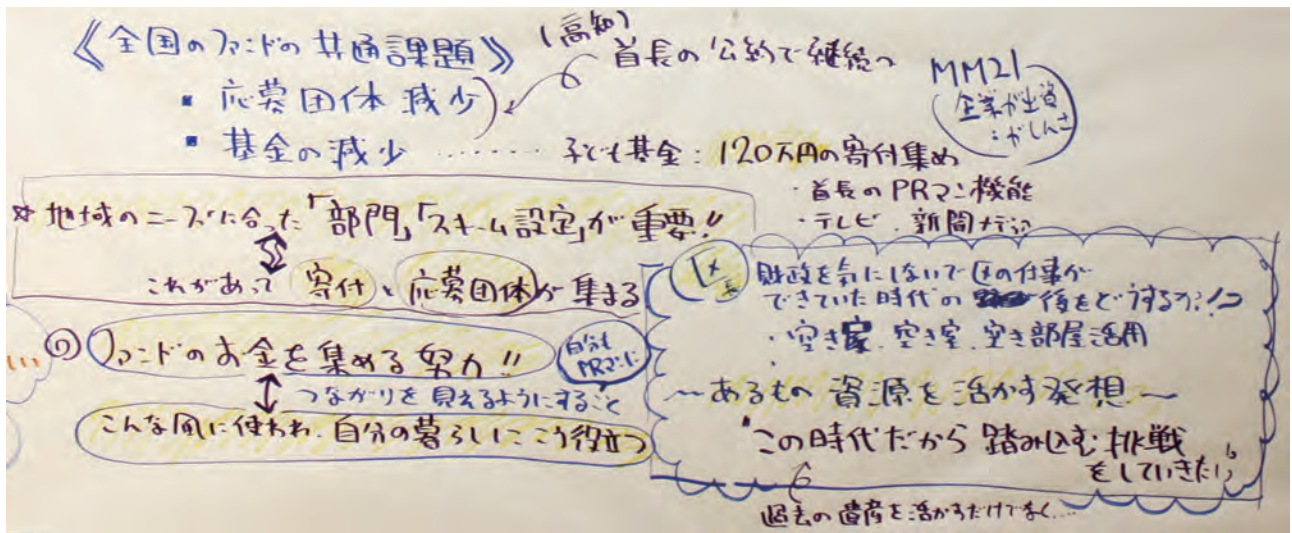 《全国のファンドの共通課題》
(高知)
首長の公約で継続へ
▪ 応募団体減少
▪ 基金の減少 ‥‥‥ 子ども基金:120万円の寄付集め
・首長のPRマン機能
・テレビ.新聞メディア
MM21
企業が出資
☆地域のニーズに合った「部門」「スキーム設定」が重要!!
これがあって 寄付と応募団体が集まる
ファンドのお金を集める努力!!
自分も
PRマンに
つながりを見えるようにすること
こんな風に使われ.自分の暮らしにこう役立つ
区長
財政を気にしないで区の仕事が
できていた時代の 後をどうするか?!
・空き家.空き室.空き部屋活用
〜あるもの資源を活かす発想〜
"この時代だから踏み込む挑戦
をしていきたい"
過去の遺産を活かすだけでなく…